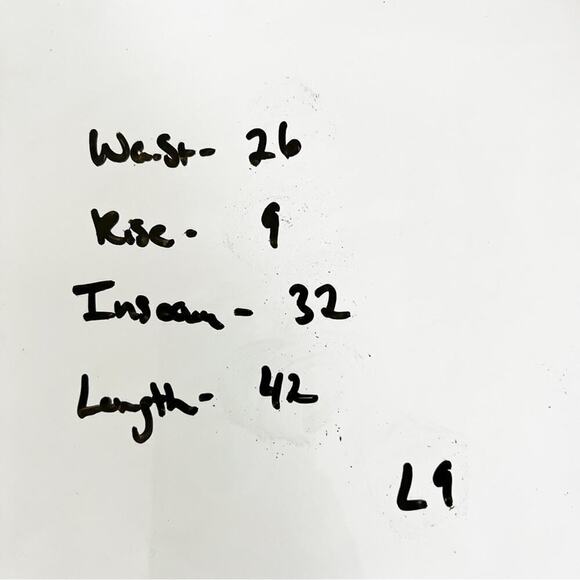 Waist- 26
Rise- 9
Inseam- 32
Length- 42
L9